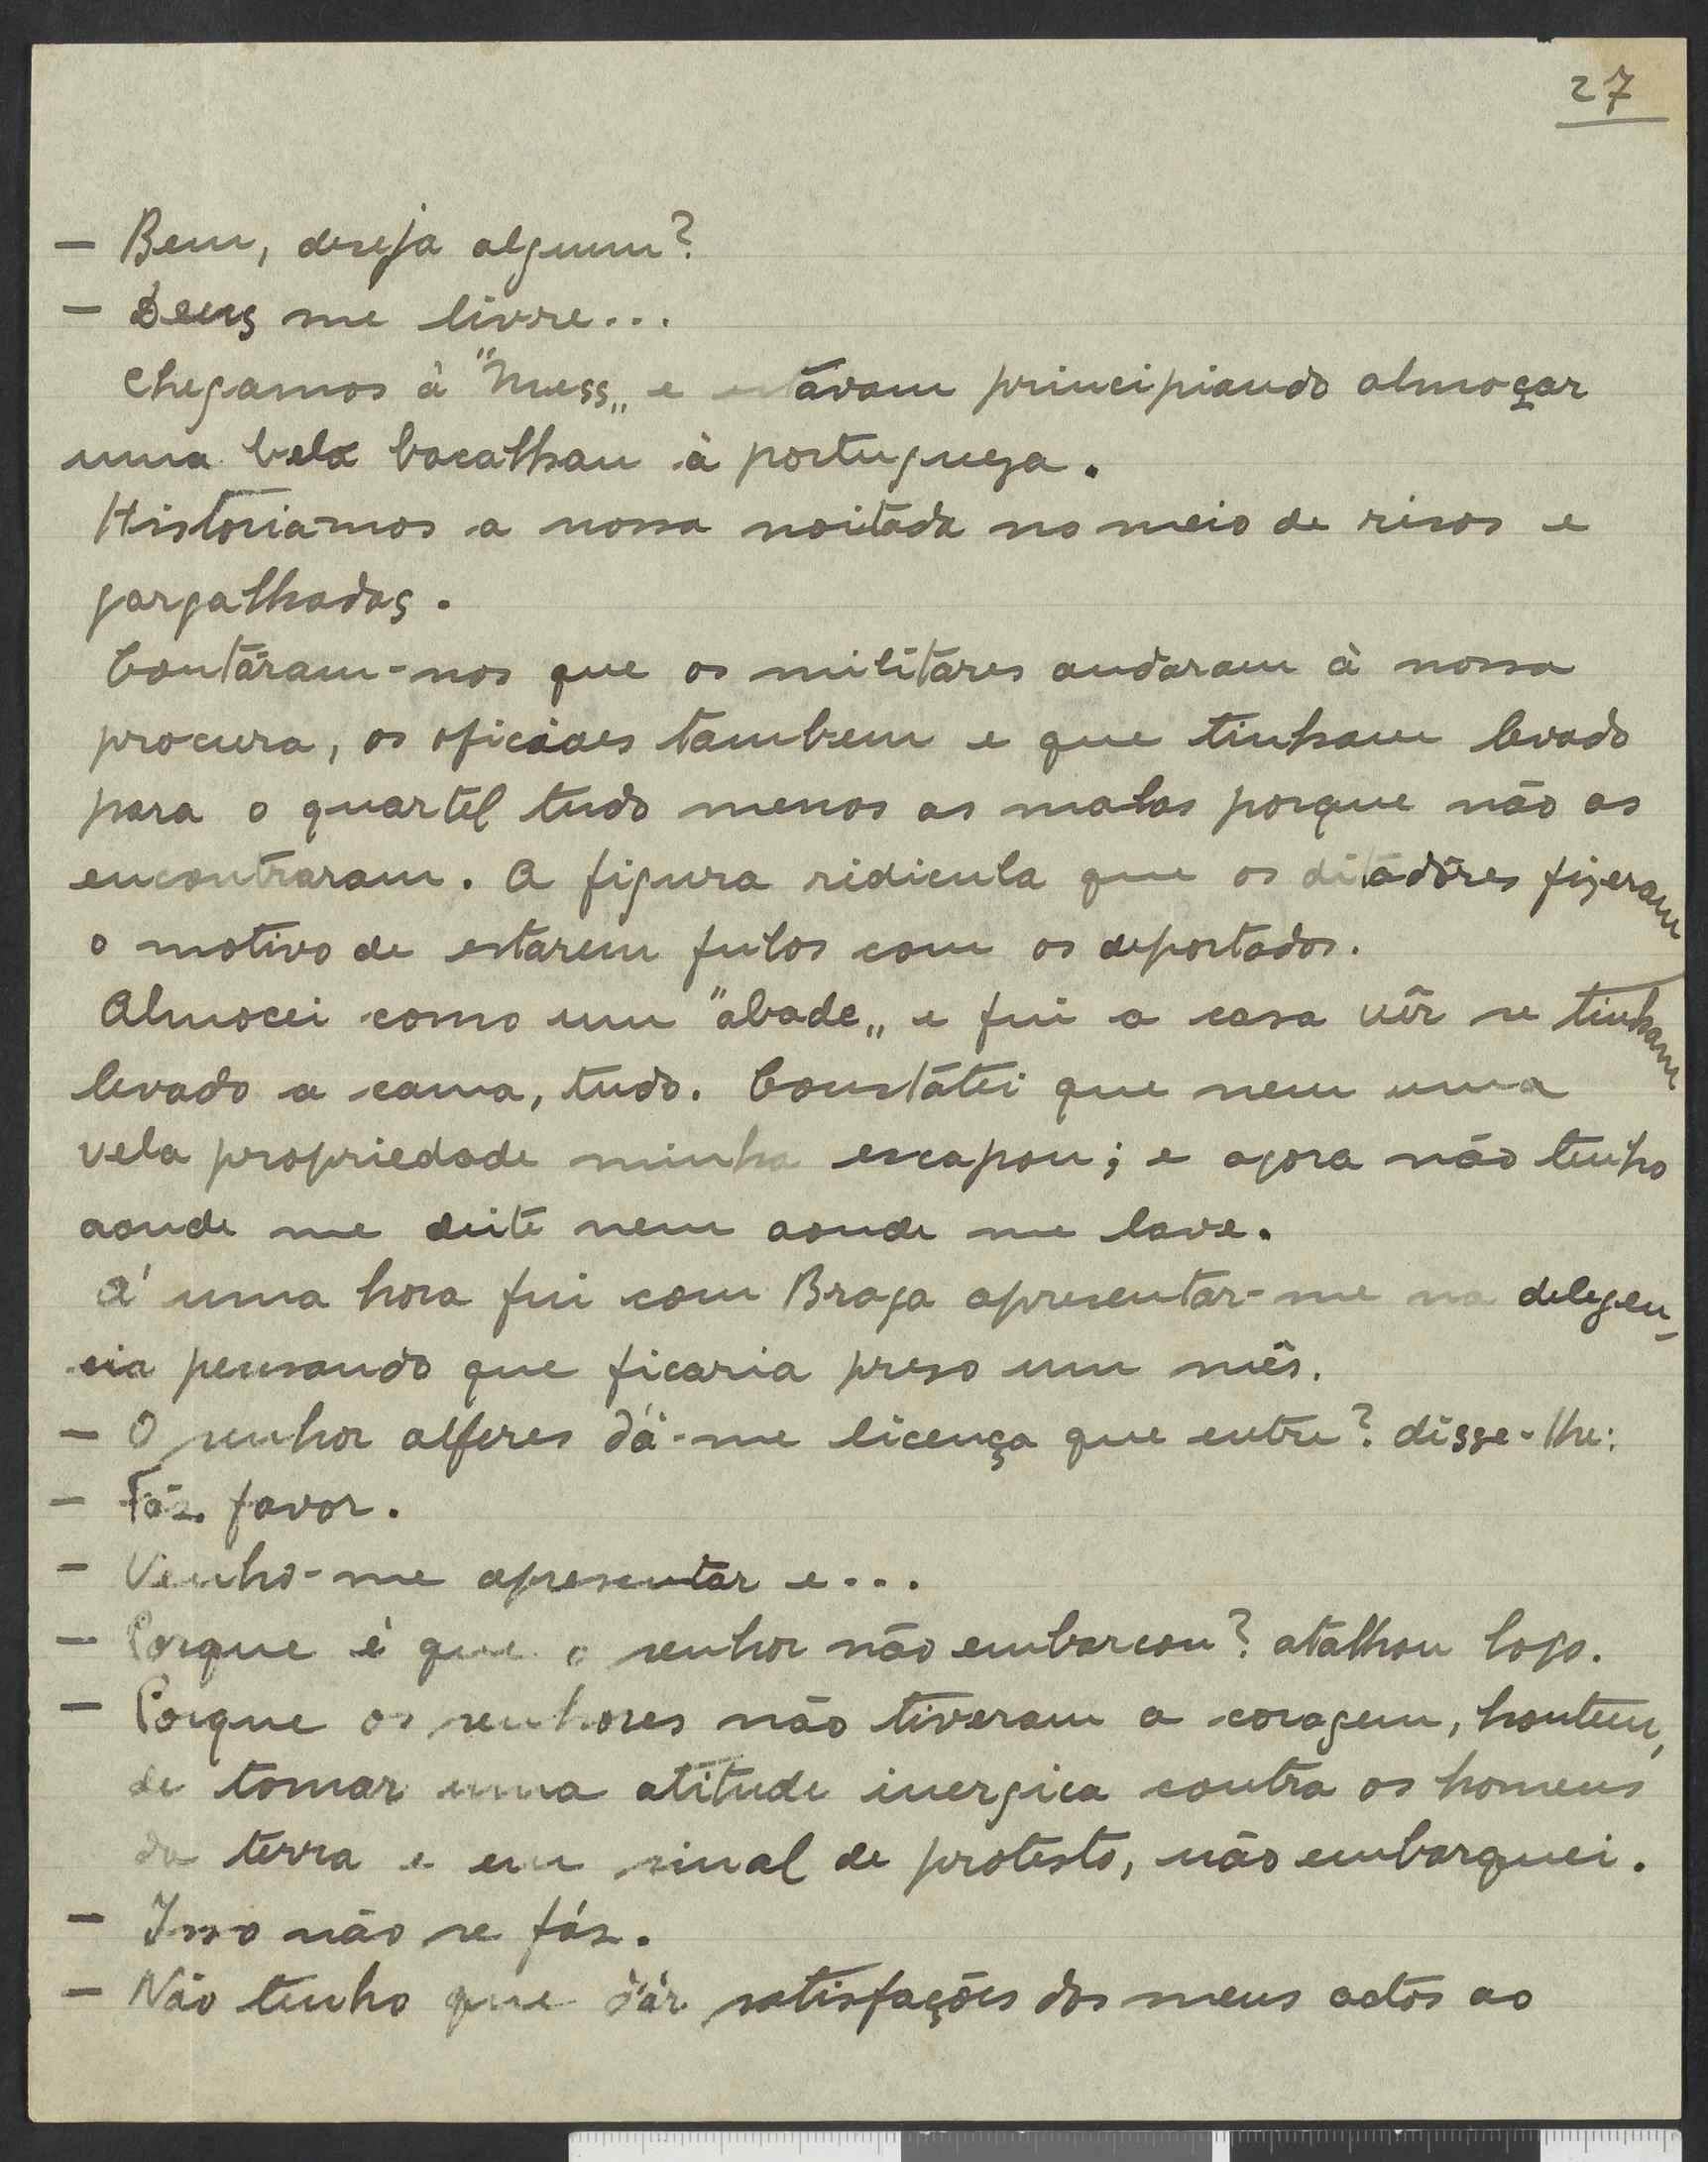 27
— Bem, deseja algum?
— Deus me livre...
Chegamos à "Mess„ e estávam principiando almoçar
uma bela bacalhau à portugueza.
Historiamos a nossa noitada no meio de risos e
gargalhadas.
Contáram-nos que os militáres andaram à nossa
procura, os oficiaes tambem e que tinham levado
para o quartel tudo menos as malas porque não as
encontraram. A figura ridicula que os ditadôres fizeram
o motivo de estarem fulos com os deportados.
Almocei como um "abade„ e fui a casa vêr se tinham
levado a cama, tudo. Constátei que nem uma
vela propriedade minha escapou; e agora não tenho
aonde me deite nem aonde me lave.
A' uma hora fui com Braga apresentar-me na delegen-
cia pensando que ficaria preso um mês.
— O senhor alferes dá-me licença que entre? disse-lhe:
— Fáz favor.
— Venho-me apresentar e...
— Porque é que o senhor não embarcou? atalhou logo.
— Porque os senhores não tiveram a coragem, hontem,
de tomar uma atitude inergica contra os homens
da terra e em sinal de protesto, não embarquei.
— Isso não se fáz.
— Não tenho que dár satisfações dos meus actos ao